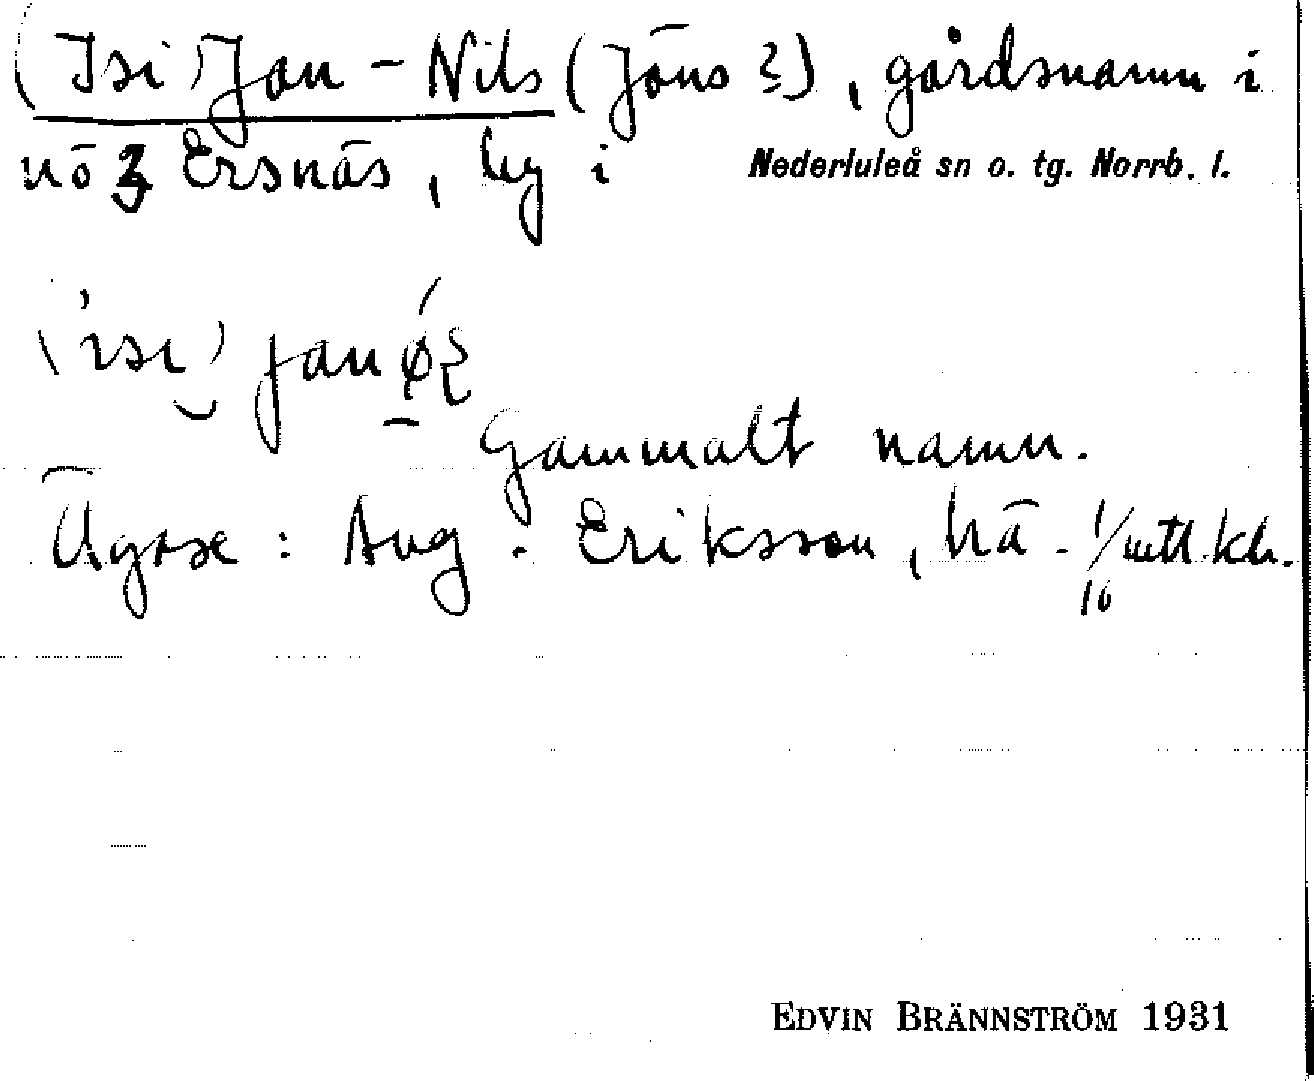 (Isi) Jan-Nils (Jöns?), gårdsnamn i
nö 3 Ersnäs, by i Nederluleå sn o. tg. Norrb. l.
Gammalt namn.
Ägare: Aug. Eriksson, hä. 1/16 mtl. kh.
EDVIN BRÄNNSTRÖM 1931